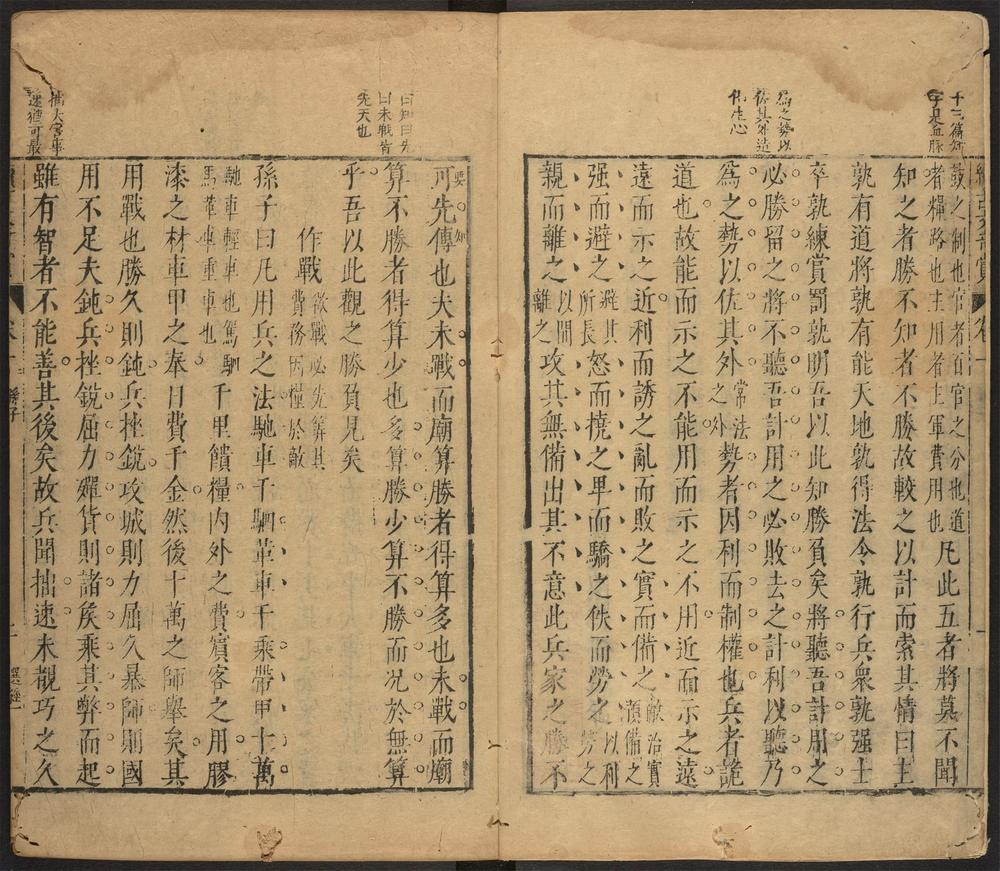 十三篇知
字是血脉
為之勢以
佐其外造
鼓之制也官者百官之分也道
者糧路也主用者主軍費用也
凡此五者將莫不聞
知之者勝不知者不勝故較之以計而索其情曰主
孰有道將孰有能天地孰得法令孰行兵衆孰强士
卒孰練賞罰孰明吾以此知勝負矣將聽吾計用之
必勝留之將不聽吾計用之必敗去之計利以聽乃
爲之勢以佐其外常法之外勢者因利而制權也兵者詭
道也故能而示之不能用而示之不用近而示之遠
遠而示之近利而誘之亂而取之實而備之敵治實須備之
强而避之避其所長怒而撓之卑而驕之佚而勞之以利勞之
親而離之以間離之攻其無備出其不意此兵家之勝不
曰知曰先
曰未戰皆
先天也
拙大害事
速猶可最
要知
可先傳也夫未戰而廟算勝者得算多也未戰而廟
算不勝者得算少也多算勝少算不勝而况於無算
乎吾以此觀之勝負見矣
作戰欲戰必先算其費務因糧於敵
孫子曰凡用兵之法馳車千駟革車千乘帶甲十萬
馳車輕車也駕駟馬革車重車也千里饋糧内外之費賓客之用膠
漆之材車甲之奉日費千金然後十萬之師舉矣其
用戰也勝久則鈍兵挫銳攻城則力屈久暴師則國
用不足夫鈍兵挫銳屈力殫貨則諸侯乘其弊而起
雖有智者不能善其後矣故兵聞拙速未覩巧之久
卷一
孫子